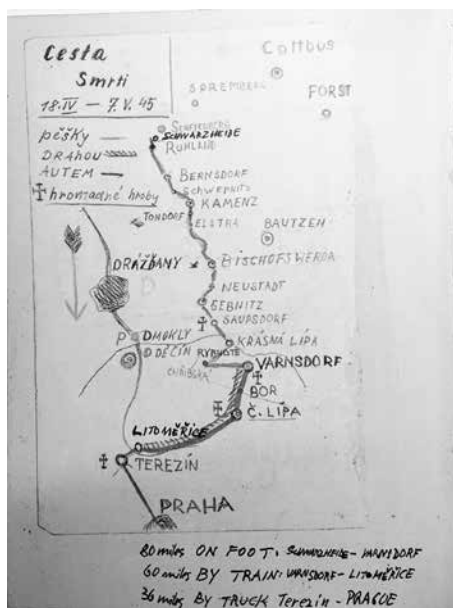 Cesta
Smrti
18.IV — 7.V.45
pěšky
DRAHOU
AUTEM
hromadné hroby
Cottbus
SPREMBERG
FORST
SCHWARZHEIDE
RUHLAND
BERNSDORF
SCHWEPNITZ
KAMENZ
TONDORF
ELSTRA
BAUTZEN
DRÁŽĎANY
BISCHOFSWERDA
NEUSTADT
SEBNITZ
SAUPSDORF
PODMOKLY
DĚČÍN
KRÁSNÁ LÍPA
RYBNIŠTĚ
CHŘIBSKÁ
VARNSDORF
BOR
Č. LÍPA
LITOMĚŘICE
TEREZÍN
PRAHA
80 miles ON FOOT: SCHWARZHEIDE - VARNSDORF
60 miles BY TRAIN: VARNSDORF - LITOMĚŘICE
36 miles BY TRUCK Terezín - PRAGUE